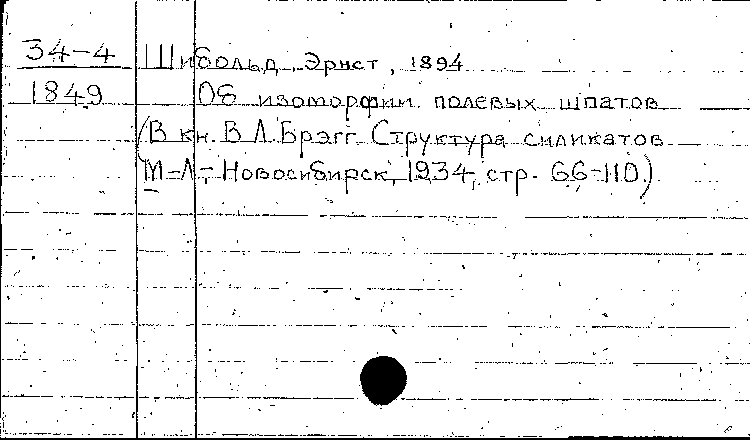 34-4 Шибольд, Эрнст, 1894
1849 Об изоморфии полевых шпатов
(В кн. В.Л.Брэгг. Структура силикатов
М-Л-Новосибирск, 1934, стр. 66-110)